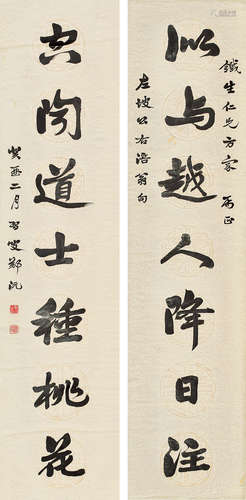 鐵生仁兄方家屬正
似与越人降日注
左坡公右涪翁句
問道士種桃花
癸酉二月習叟鄭沅